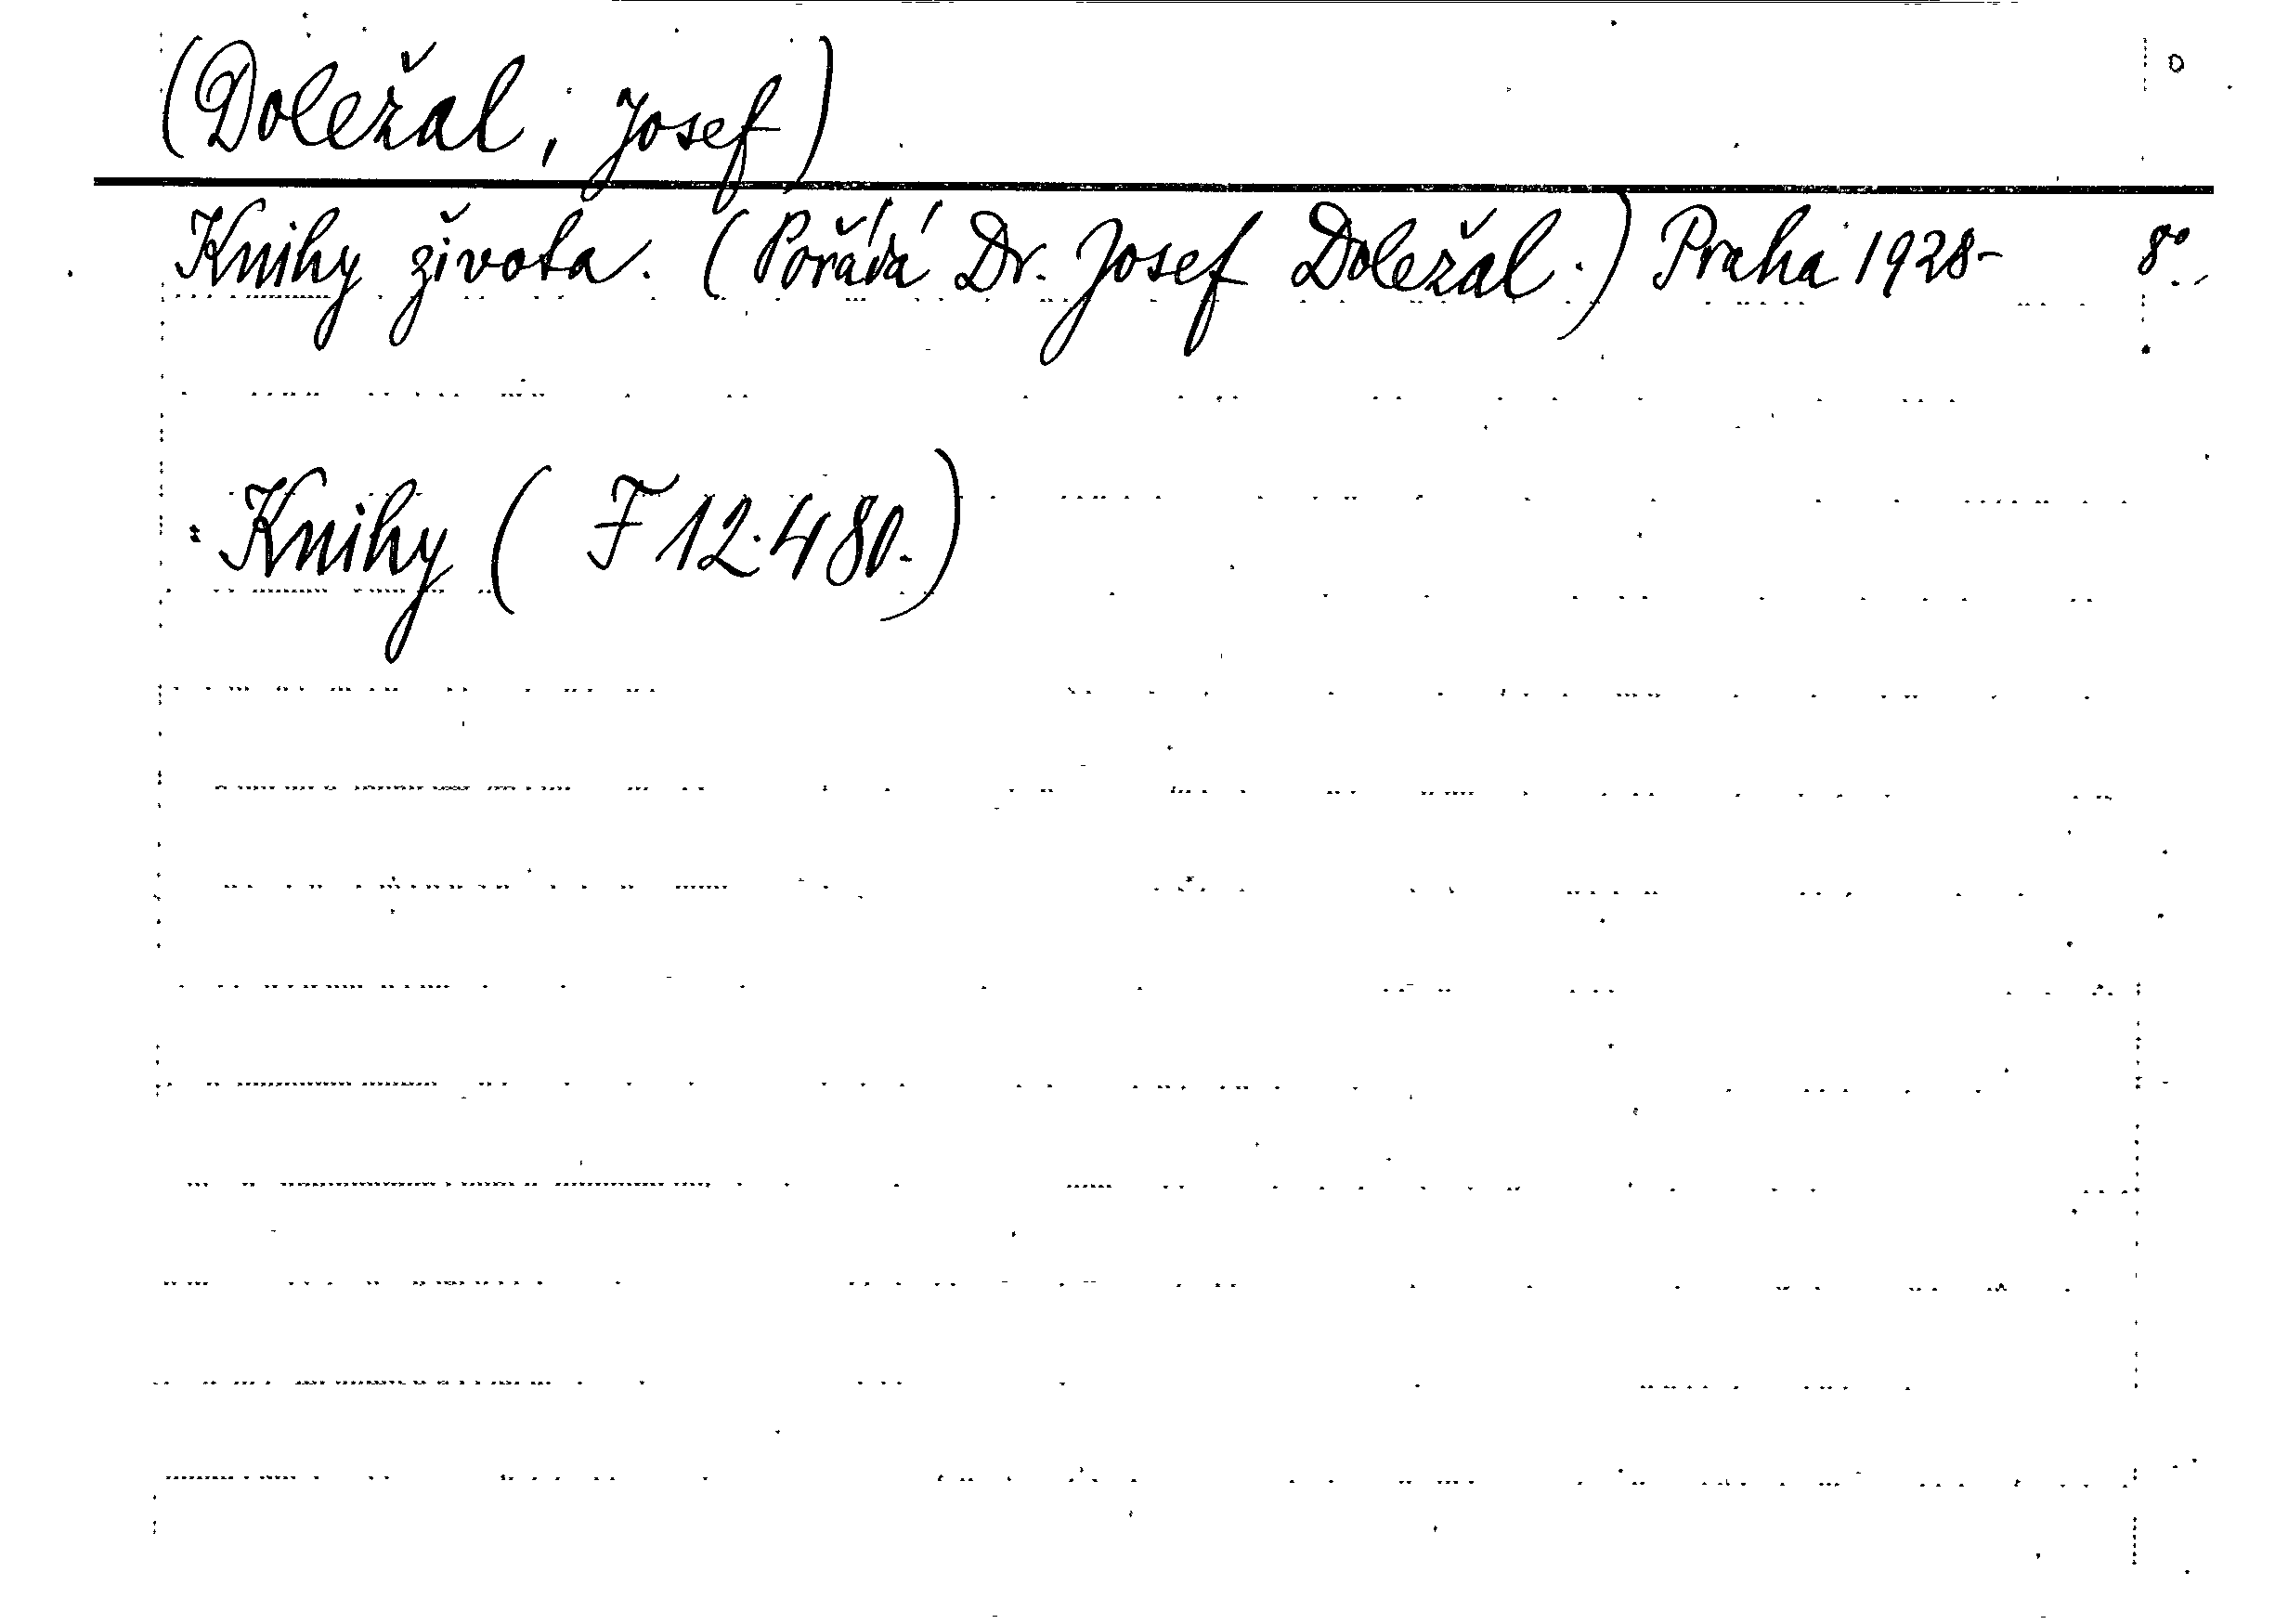 (Doležal, Josef)
Knihy života. (Pořádá Dr. Josef Doležal.) Praha 1928- 8°.
Knihy (F 12.480.)